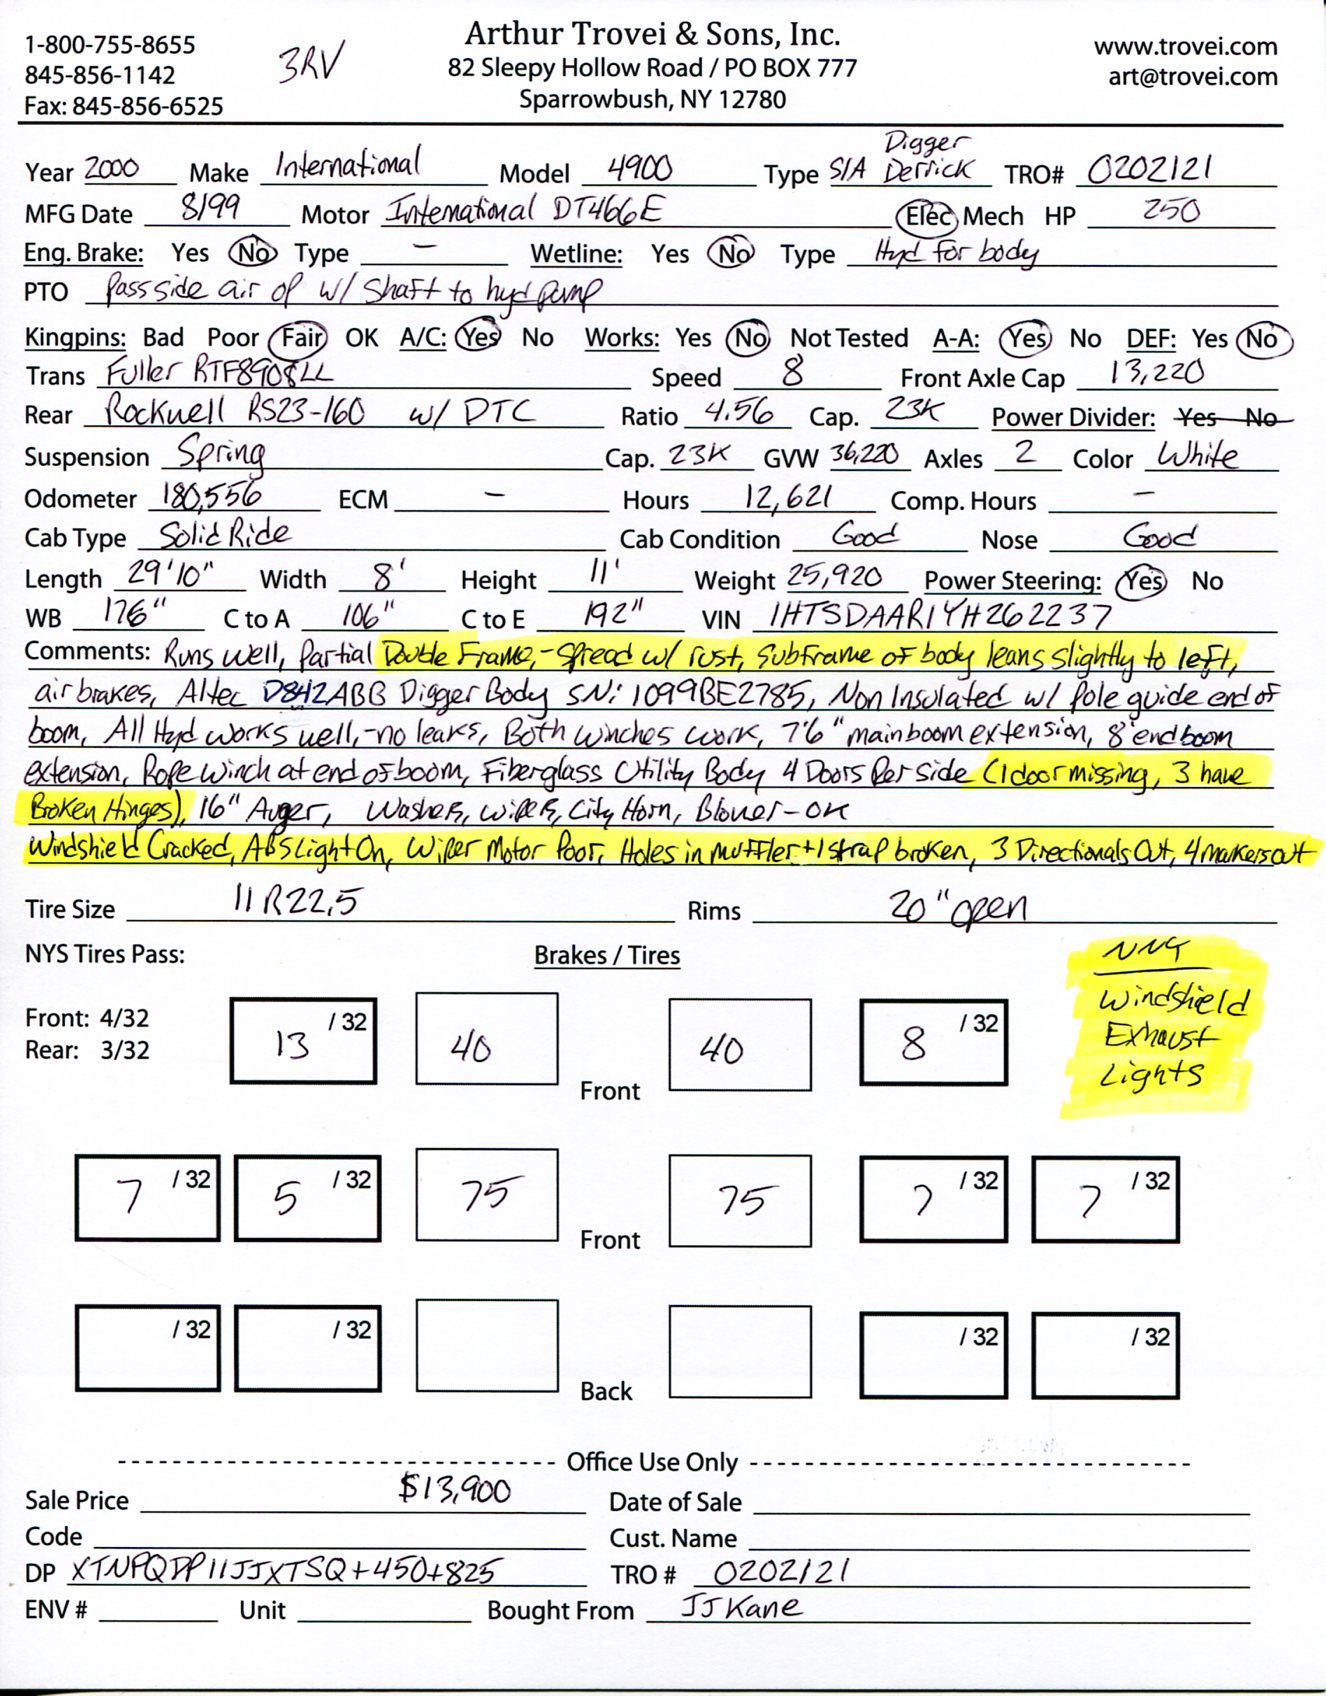 1-800-755-8655
845-856-1142
Fax: 845-856-6525
3RV
Arthur Trovei & Sons, Inc.
82 Sleepy Hollow Road / PO BOX 777
Sparrowbush, NY 12780
www.trovei.com
art@trovei.com
Year 2000 Make International Model 4900 Type S/A Digger Derrick TRO# 0202121
MFG Date 8/99 Motor International DT466E Elec Mech HP 250
Eng. Brake: Yes No Type – Wetline: Yes No Type Hyd for body
PTO Pass side air op w/ shaft to hyd pump
Kingpins: Bad Poor Fair OK A/C: Yes No Works: Yes No Not Tested A-A: Yes No DEF: Yes No
Trans Fuller RTF8908LL Speed 8 Front Axle Cap 13,220
Rear Rockwell RS23-160 w/ DTC Ratio 4.56 Cap. 23K Power Divider: Yes No
Suspension Spring Cap. 23K GVW 36,220 Axles 2 Color White
Odometer 180,556 ECM – Hours 12,621 Comp. Hours –
Cab Type Solid Ride Cab Condition Good Nose Good
Length 29'10" Width 8' Height 11' Weight 25,920 Power Steering: Yes No
WB 176" C to A 106" C to E 192" VIN 1HTSDAAR1YH262237
Comments: Runs well, Partial Double Frame,-Spread w/ rust, Subframe of body leans slightly to left,
air brakes, Altec D842ABB Digger Body SN: 1099BE2785, Non Insulated w/ pole guide end of
boom, All Hyd works well,-no leaks, Both winches work, 7'6" main boom extension, 8' end boom
extension, Rope winch at end of boom, Fiberglass Utility Body 4 Doors Per Side (1 door missing, 3 have
Broken Hinges), 16" Auger, Washers, Wipers, City Horn, Blower-OK
Windshield Cracked, ABS Light On, Wiper Motor Poor, Holes in muffler + 1 strap broken, 3 Directionals Out, 4 markers out
Tire Size 11R22.5 Rims 20" open
NYS Tires Pass: Brakes / Tires
Front: 4/32
Rear: 3/32
13 /32 40 Front 40 8 /32
Windshield
Exhaust
Lights
7 /32 5 /32 75 Front 75 7 /32 7 /32
/32 /32 Back /32 /32
Office Use Only
Sale Price $13,900 Date of Sale
Code Cust. Name
DP XTNPQDP11JJXTSQ+450+825 TRO # 0202121
ENV # Unit Bought From JJ Kane